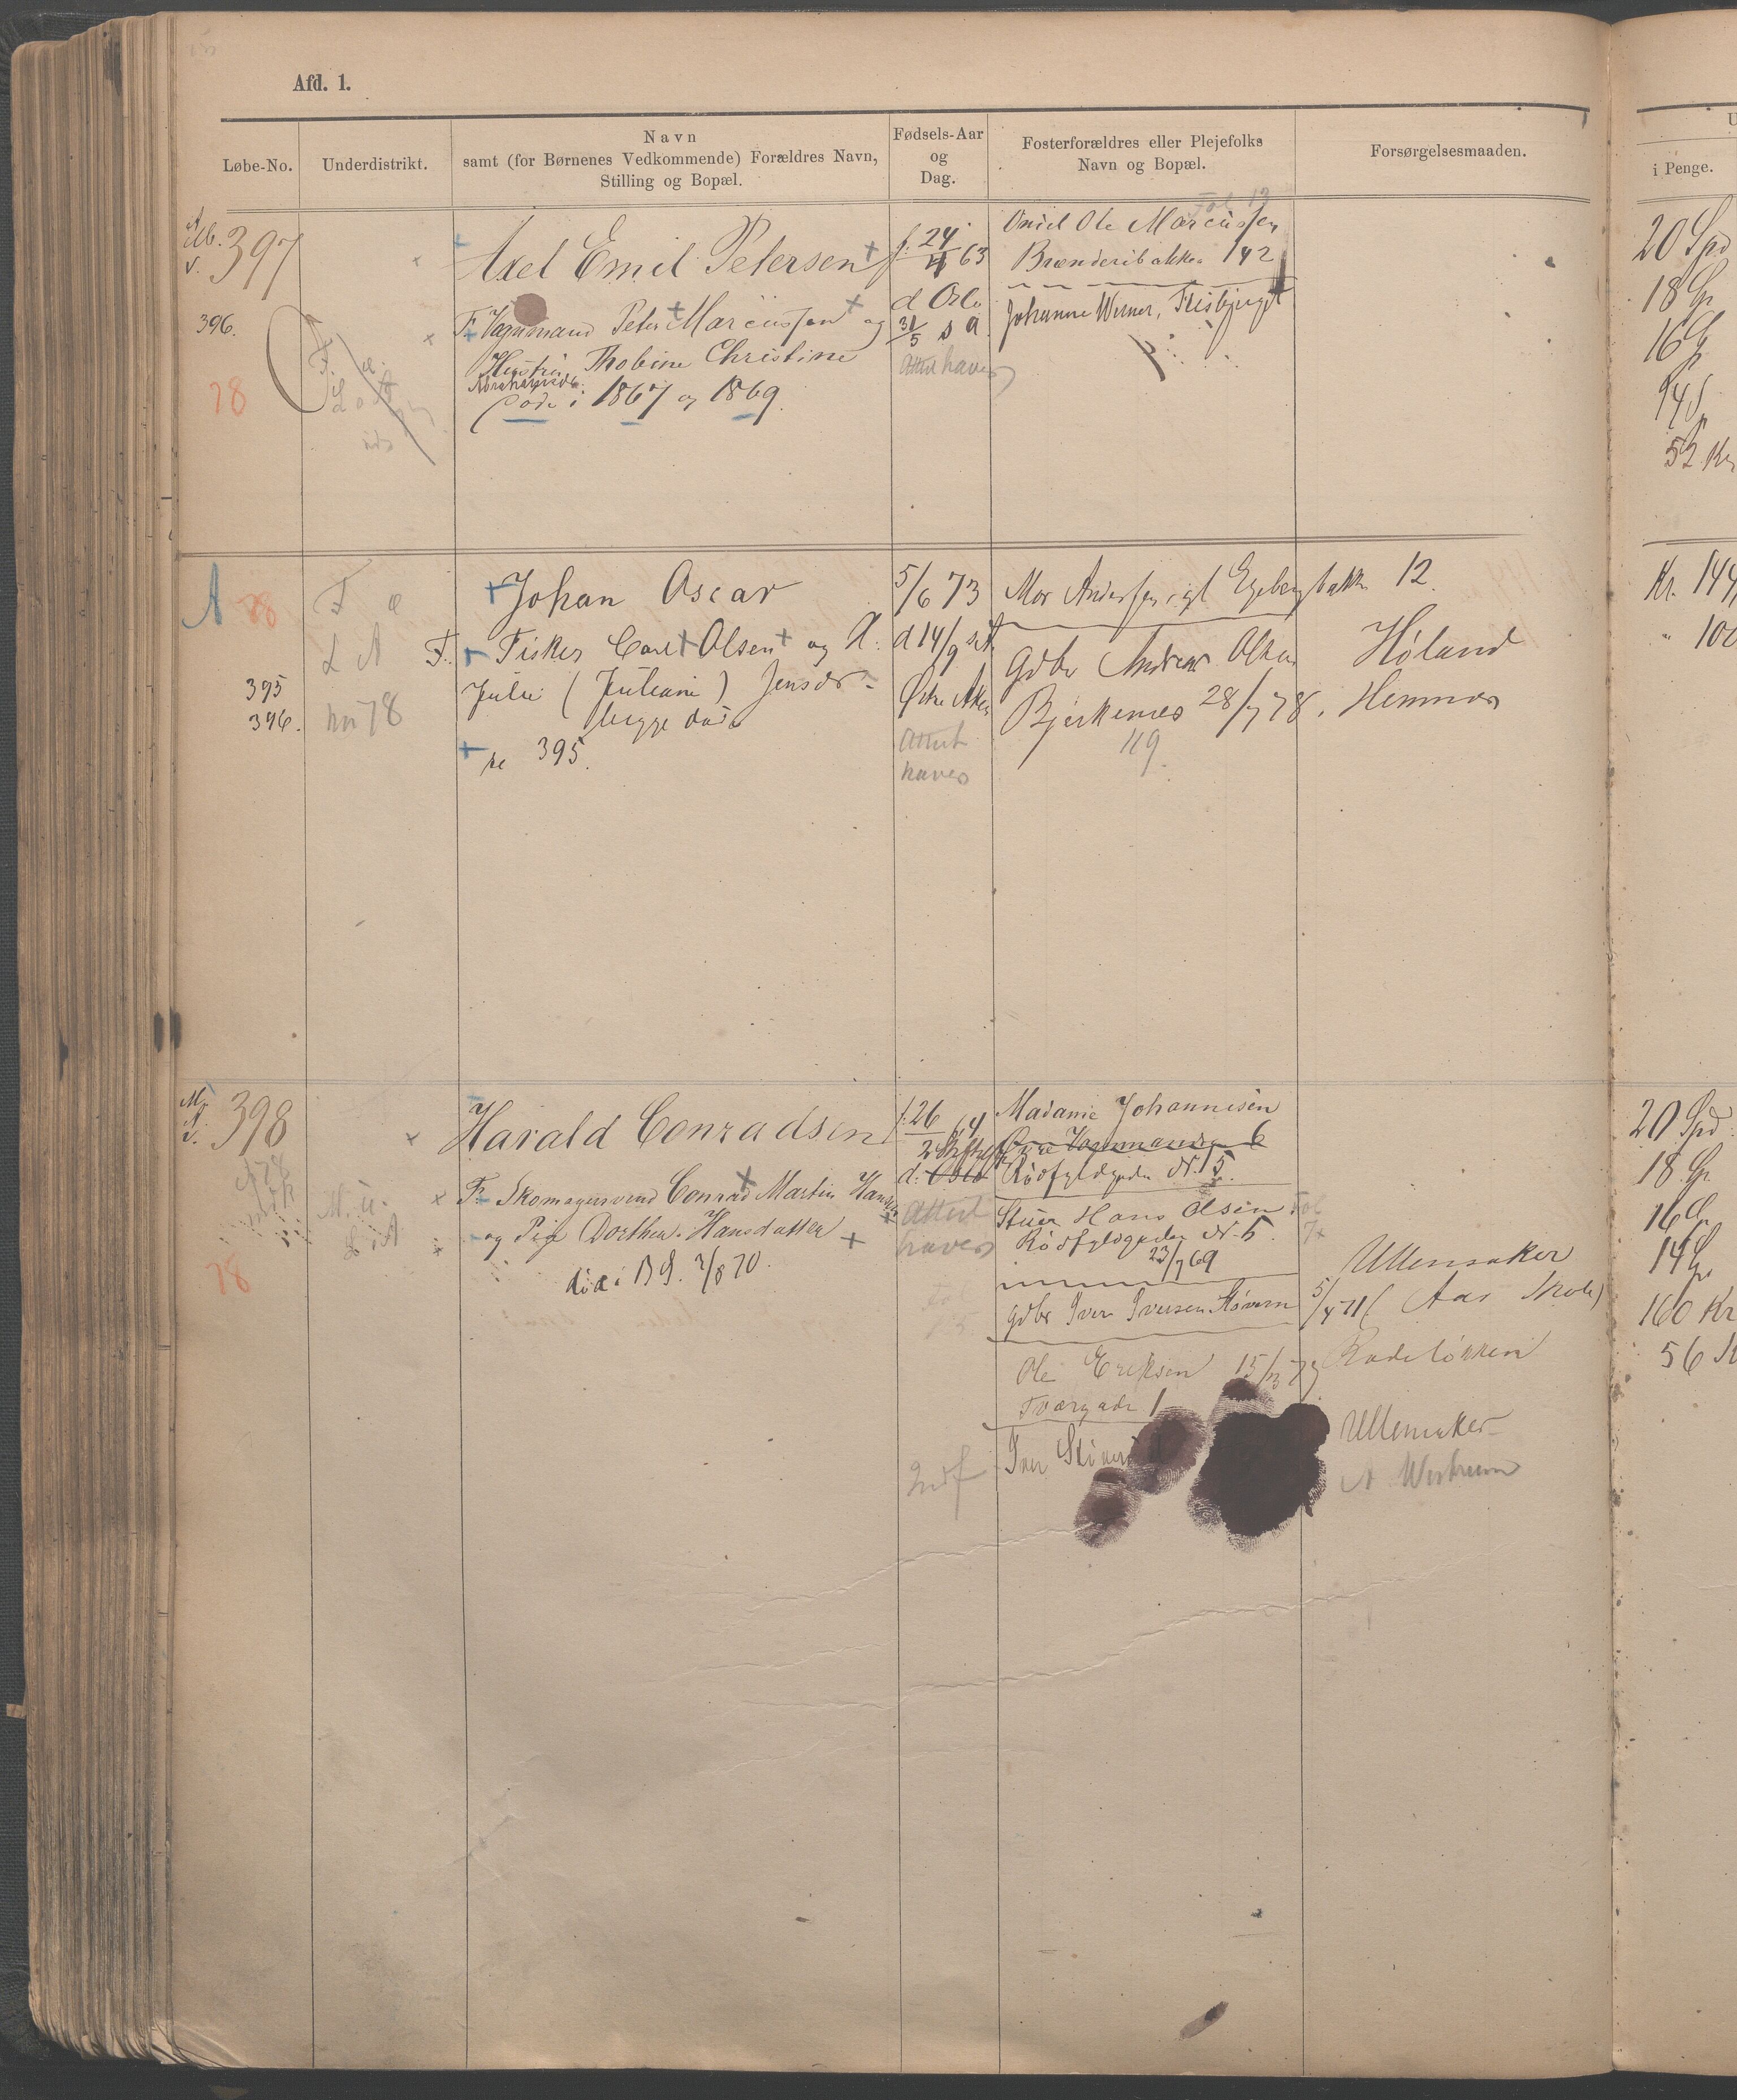 Afd. 1.
Løbe-No.
Underdistrikt.
Navn
samt (for Børnenes Vedkommende) Forældres Navn,
Stilling og Bopæl.
Fødsels-Aar
og
Dag.
Fosterforældres eller Plejefolks
Navn og Bopæl.
Forsørgelsesmaaden.
i Penge.
397
396.
78
Axel Emil Petersen
F. Vognmand Peter Marcussen og
Hustru Thobine Christine
Abrahamsdr.
(døde i 1867 og 1869.
f. 24/4 63
d Oslo
31/5 s A
Attest haves
Onkel Ole Marcussen
Brænderibakken 142
Johanne Werner,
20 Spd
18
16
14
52 Kr
A 78
F æ
L A
nov 78
395
396.
Johan Oscar
F. Fisker Carl Olsen og H.
Julie (Juliane) Jensdr.
begge døde
se 395.
5/6 73
d 14/9 s A
Østre Aker
Attest
haves
Mor Andersen, Egebergbakken 12.
Gdbr Andreas Olsen
Bjerkenes 28/7 78.
119
Høland
Hemnes
Kr. 144
" 100
398
78
Harald Conradsen
F. Skomagersvend Conrad Martin Hansen
og Pige Dorthea Hansdatter
død i BS. 2/8 70.
f. 26/2 64
d. Oslo
Attest
haves
Madame Johannesen
Rødfyldgaden N. 15.
Stuer Hans Olsen
Rødfyldgaden N. 5.
23/7 69
Gdbr Iver Iversen Støvern
Ole Eriksen 15/3 79
Tværgade 1
Iver
Indf
Ullensaker
5/4 71 (Aas Skole)
Rodeløkken
Ullensaker
20 Spd
18
16
14
160 Kr
56